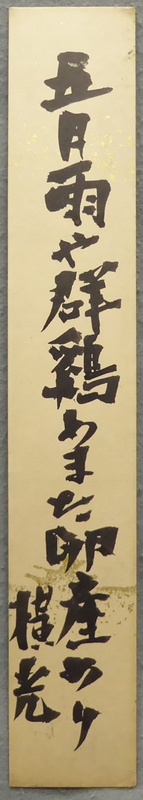 五月雨や群鶏あまた卵産めり
横光